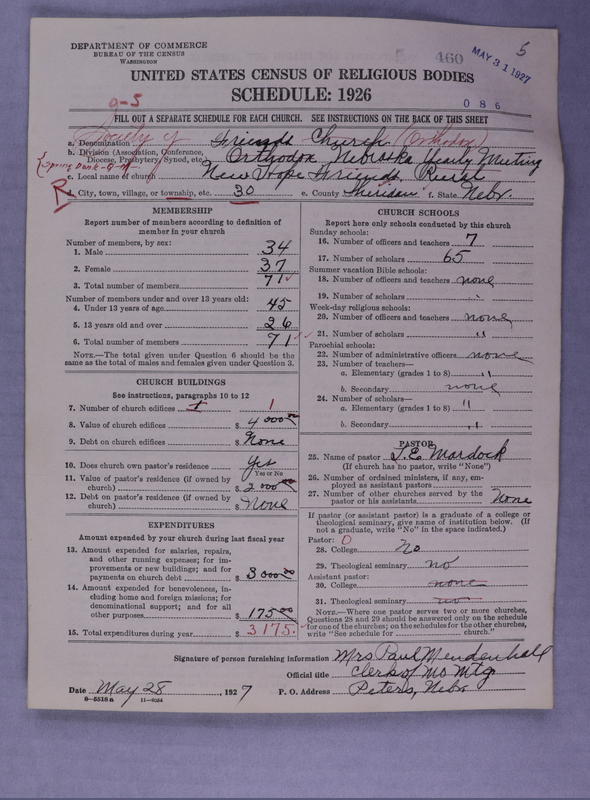 5
460
MAY 31 1927
DEPARTMENT OF COMMERCE
BUREAU OF THE CENSUS
WASHINGTON
UNITED STATES CENSUS OF RELIGIOUS BODIES
SCHEDULE: 1926
9-5
0 8 6
FILL OUT A SEPARATE SCHEDULE FOR EACH CHURCH. SEE INSTRUCTIONS ON THE BACK OF THIS SHEET
Society of
a. Denomination Friends Church (Orthodox)
b. Division (Association, Conference,
Diocese, Presbytery, Synod, etc.) Orthodox Nebraska Yearly Meeting
c. Local name of church New Hope Friends, Rural
R d. City, town, village, or township, etc. 30 e. County Sheridan f. State Nebr.
MEMBERSHIP
Report number of members according to definition of
member in your church
Number of members, by sex:
1. Male 34
2. Female 37
3. Total number of members 71
Number of members under and over 13 years old:
4. Under 13 years of age 45
5. 13 years old and over 26
6. Total number of members 71
NOTE.—The total given under Question 6 should be the
same as the total of males and females given under Question 3.
CHURCH BUILDINGS
See instructions, paragraphs 10 to 12
7. Number of church edifices 1 1
8. Value of church edifices $ 4000.00
9. Debt on church edifices $ None
10. Does church own pastor's residence Yes
Yes or No
11. Value of pastor's residence (if owned by
church) $ 2000.00
12. Debt on pastor's residence (if owned by
church) $ None
EXPENDITURES
Amount expended by your church during last fiscal year
13. Amount expended for salaries, repairs,
and other running expenses; for im-
provements or new buildings; and for
payments on church debt $ 3000.00
14. Amount expended for benevolences, in-
cluding home and foreign missions; for
denominational support; and for all
other purposes $ 175.00
15. Total expenditures during year $ 3175.
CHURCH SCHOOLS
Report here only schools conducted by this church
Sunday schools:
16. Number of officers and teachers 7
17. Number of scholars 65
Summer vacation Bible schools:
18. Number of officers and teachers none
19. Number of scholars "
Week-day religious schools:
20. Number of officers and teachers none
21. Number of scholars "
Parochial schools:
22. Number of administrative officers none
23. Number of teachers—
a. Elementary (grades 1 to 8) "
b. Secondary none
24. Number of scholars—
a. Elementary (grades 1 to 8) "
b. Secondary "
PASTOR
25. Name of pastor J. E. Mardock
(If church has no pastor, write "None")
26. Number of ordained ministers, if any, em-
ployed as assistant pastors
27. Number of other churches served by the
pastor or his assistants None
If pastor (or assistant pastor) is a graduate of a college or
theological seminary, give name of institution below. (If
not a graduate, write "No" in the space indicated.)
Pastor: 0
28. College No
29. Theological seminary no
Assistant pastor:
30. College none
31. Theological seminary no
NOTE.—Where one pastor serves two or more churches,
Questions 28 and 29 should be answered only on the schedule
for one of the churches; on the schedules for the other churches,
write "See schedule for church."
Signature of person furnishing information Mrs Paul Mendenhall
Official title Clerk of Mo Mtg
Date May 28, 1927 P. O. Address Peters, Nebr
8—5518 a 11—9264